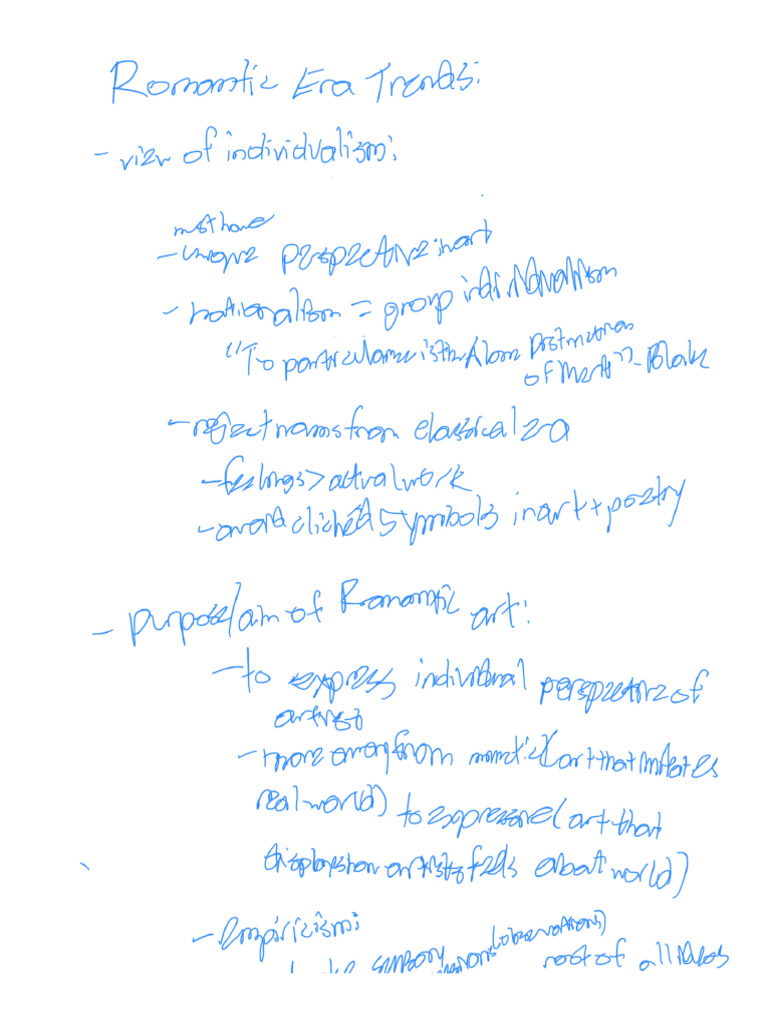 Romantic Era Trends:
- view of individualism:
must have
- unique perspective in art
- nationalism = group individualism
"To particularize is the Alone Distinction
of Merit" - Blake
- reject norms from classical era
- feelings > actual work
- avoid clichéd symbols in art + poetry
- purpose/aim of Romantic art:
- to express individual perspective of
artist
- move away from mimetic (art that imitates
real world) to expressive (art that
displays how artists feels about world)
- Empiricism:
(observations)
sensory root of all ideas